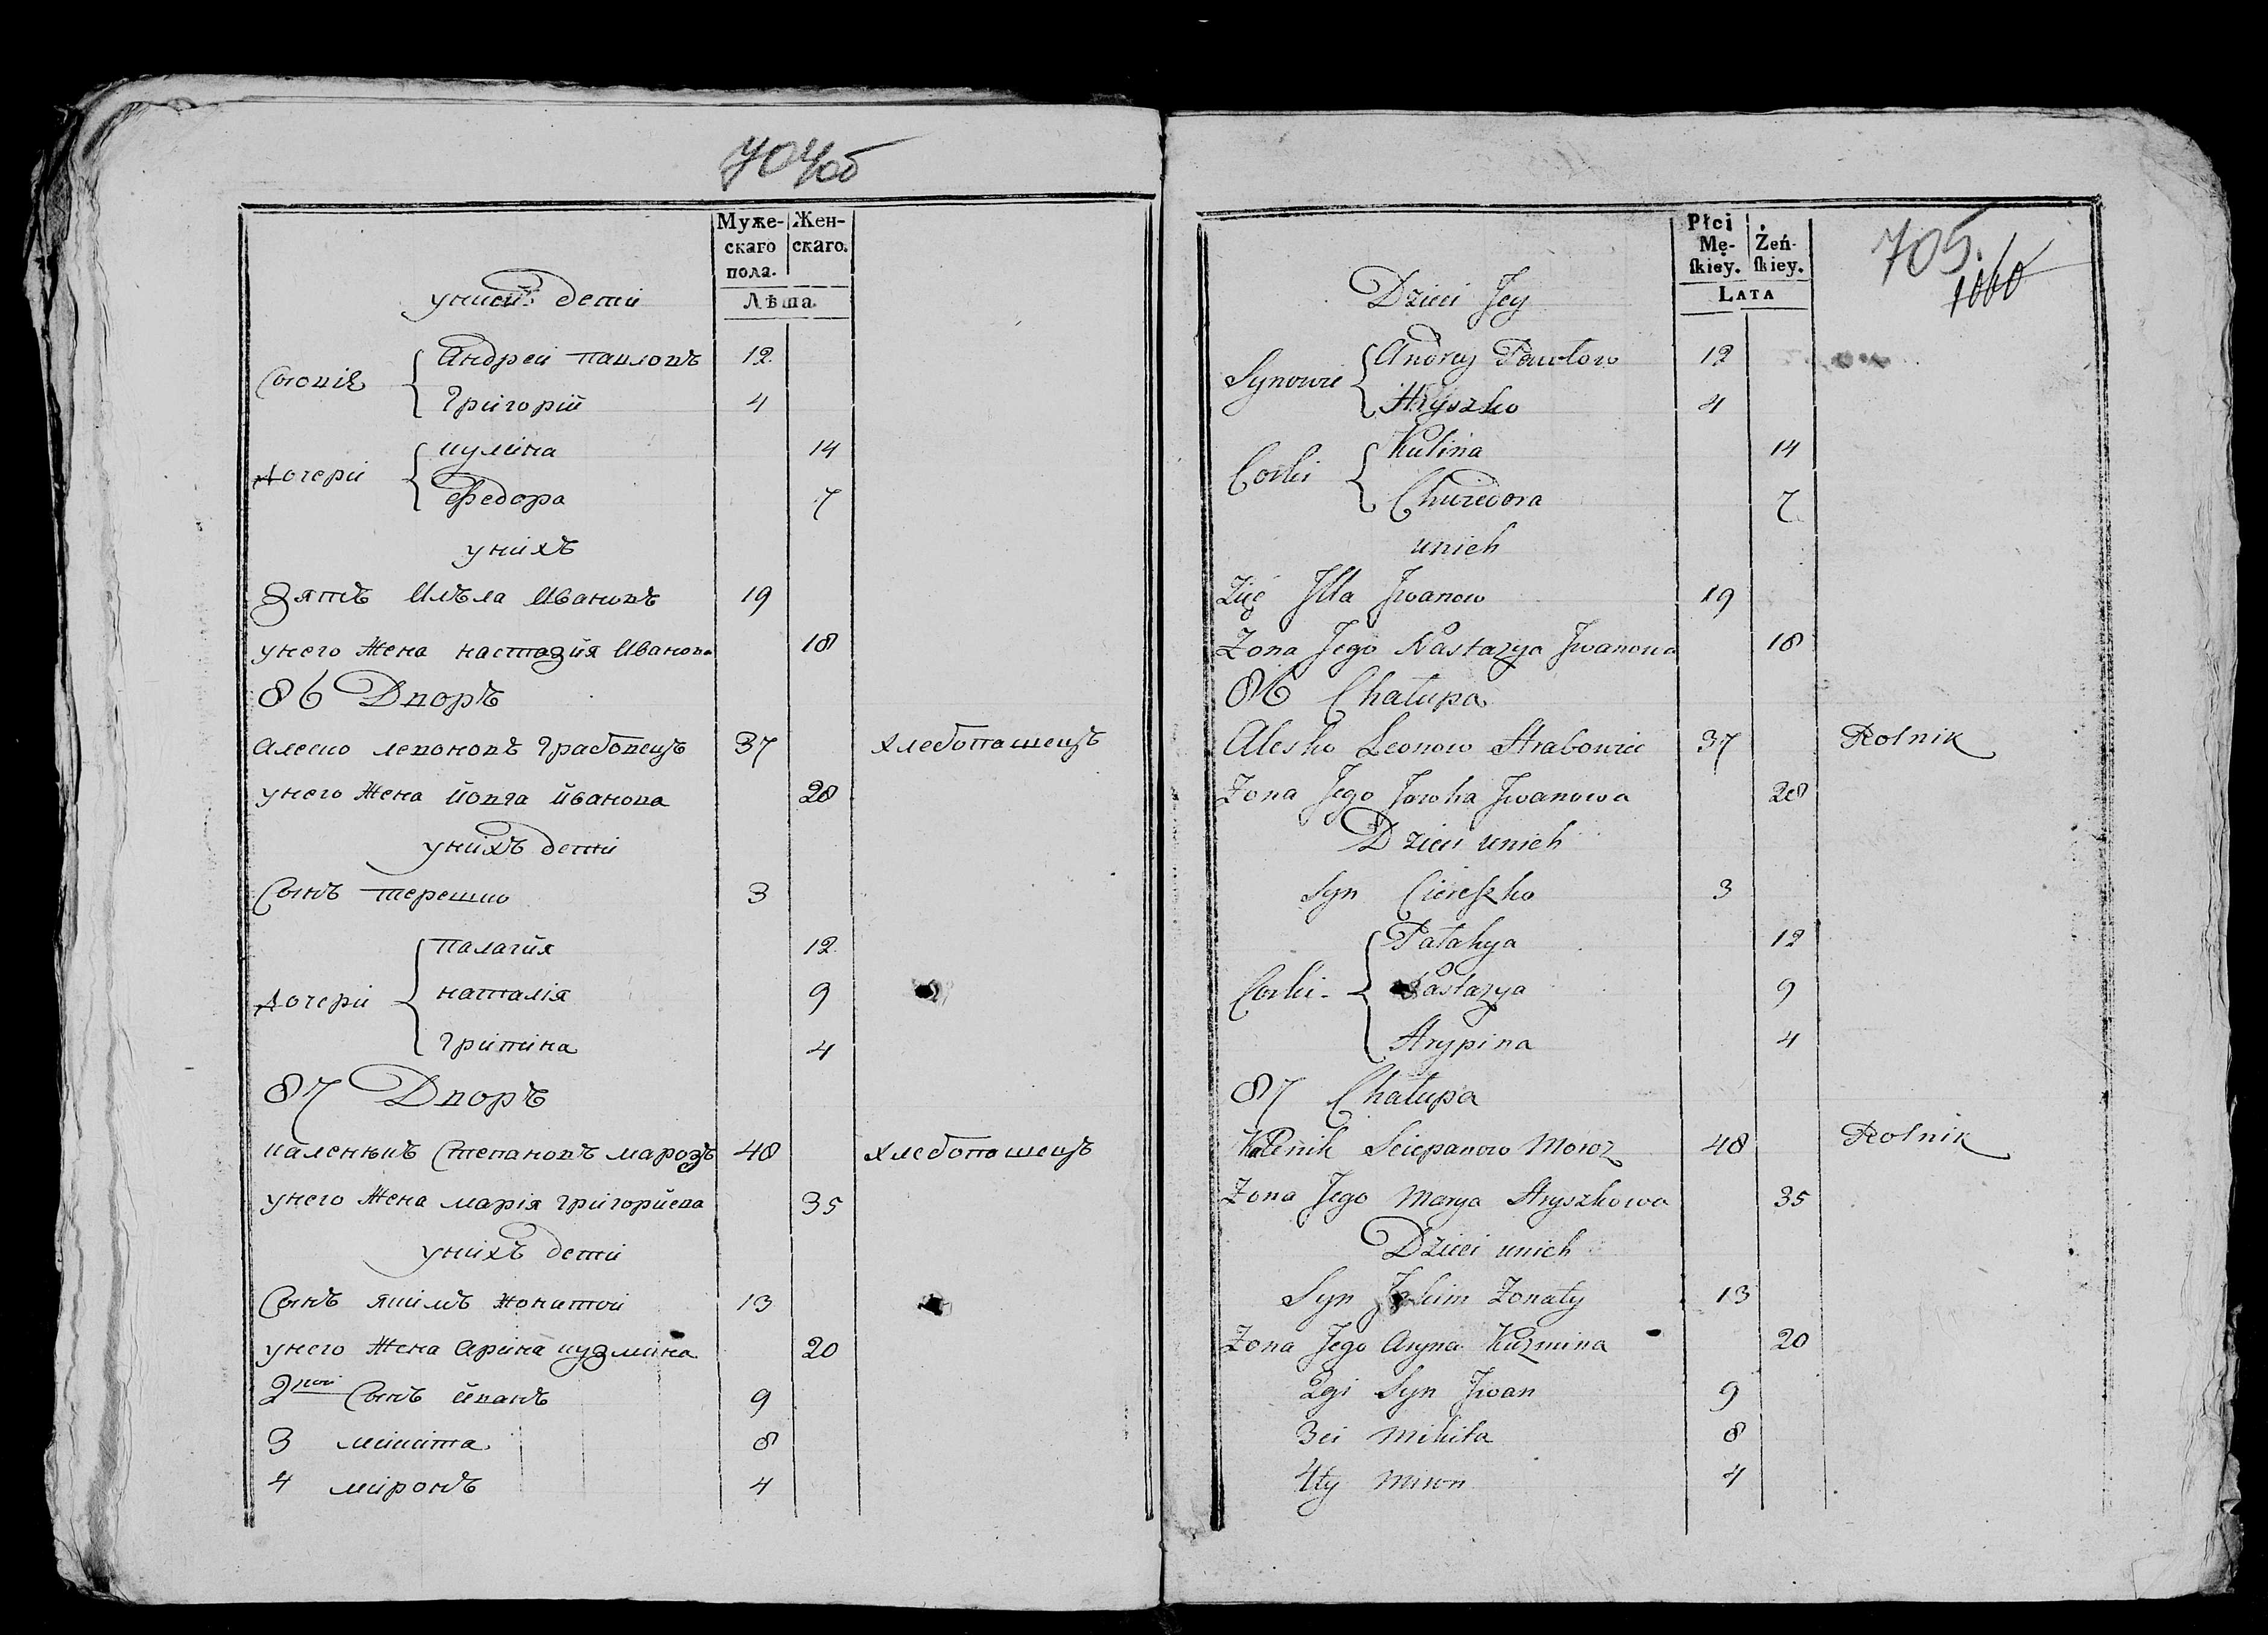 704об
Муже- Жен-
скаго скаго.
пола.
Лѣта
у ниси: дети
Сыновіе Андреи павловъ 12
Григорій 4
Дочери кулина 14
Федора 7
у нихъ
Зять Илъла Ивановъ 19
у него Жена настазия Иванова 18
86 Дворъ
алеско левоновъ Грабовецъ 37 хлебопашецъ
у него Жена йовга йванова 28
у нихъ дети
Сынъ терешко 3
Дочери палагия 12
наталія 9
Грипина 4
87 Дворъ
каленикъ Степановъ марозъ 48 хлебопашецъ
у него Жена марія григорйева 35
у нихъ дети
Сынъ якимъ жонатой 13
у него Жена Арина кузмина 20
2рой Сынъ йванъ 9
3 микита 8
4 миронъ 4
Płci
Mę- Żeń-
skiey. skiey.
LATA
705.
1060
Dzieci Jey
Synowie Andrey Pawłow 12
Hryszko 4
Corki Kulina 14
Chwiedora 7
unich
Zię Jlla Jwanow 19
Zona Jego Nastazya Jwanowa 18
86 Chałupa
Alesko Leonow Hrabowiec 37 Rolnik
Zona Jego Jowha Jwanowa 28
Dzieci unich
Syn Ciereszko 3
Corki - Pałahya 12
Nastazya 9
Hrypina 4
87 Chałupa
Kalenik Sciepanow Moroz 48 Rolnik
Zona Jego Marya Hryszkowa 35
Dzieci unich
Syn Jakim Zonaty 13
Zona Jego Aryna Kuzmina 20
2gi Syn Jwan 9
3ci Mikita 8
4ty Miron 4